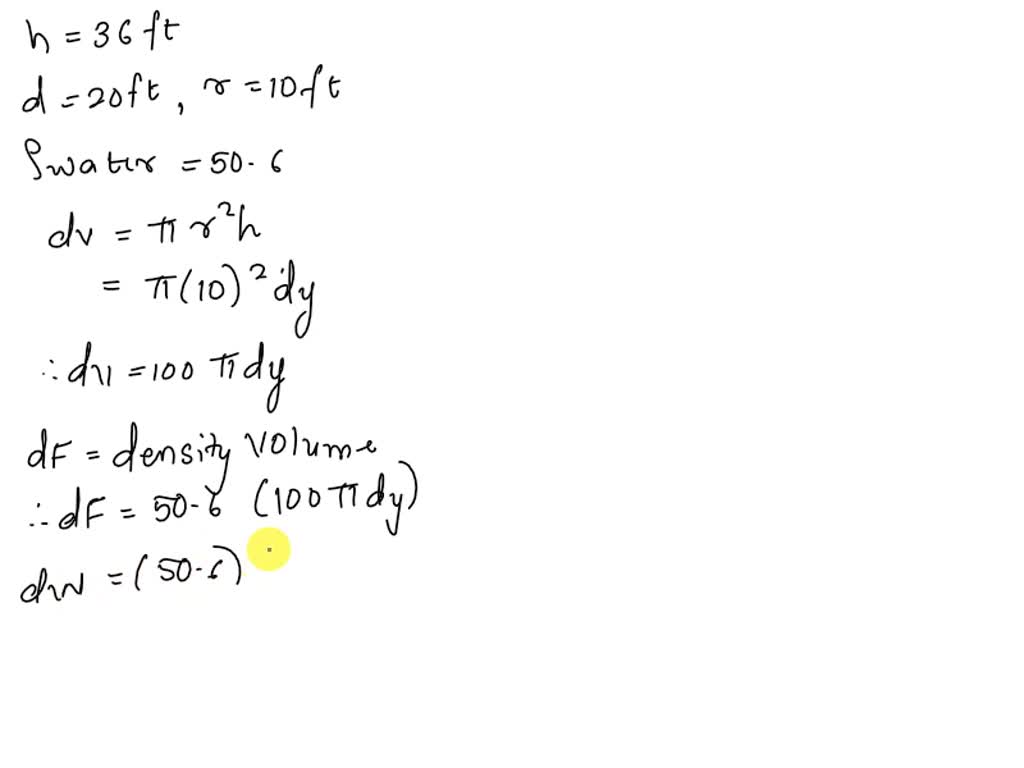 h = 36 ft
d = 20ft, r = 10 ft
ρwater = 50.6
dv = π r²h
= π(10)² dy
∴ dv = 100 π dy
dF = density volume
∴ dF = 50.6 (100 π dy)
dw = (50.6)